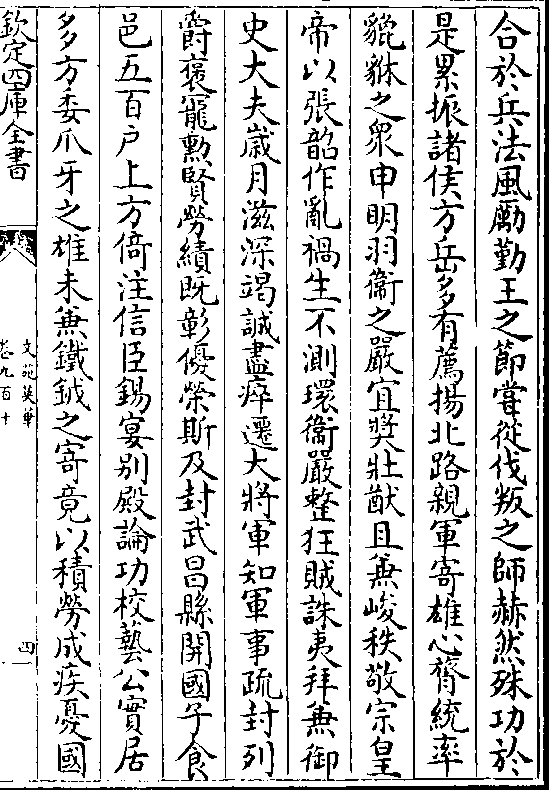 合於兵法風勵勤王之節嘗從伐叛之師赫然殊功於
是累振諸侯方岳多有薦揚北路親軍寄雄心膂統率
貔貅之衆申明羽衞之嚴宜奬壯猷且兼峻秩敬宗皇
帝以張韶作亂禍生不測環衞嚴整狂賊誅夷拜兼御
史大夫嵗月滋深竭誠盡瘁遷大將軍知軍事疏封列
爵褒寵勲賢勞績既彰優榮斯及封武昌縣開國子食
邑五百户上方倚注信臣錫宴别殿論功校藝公實居
多方委爪牙之雄未兼鐵鉞之寄竟以積勞成疾憂國
欽定四庫全書
文苑英華
卷九百十
四